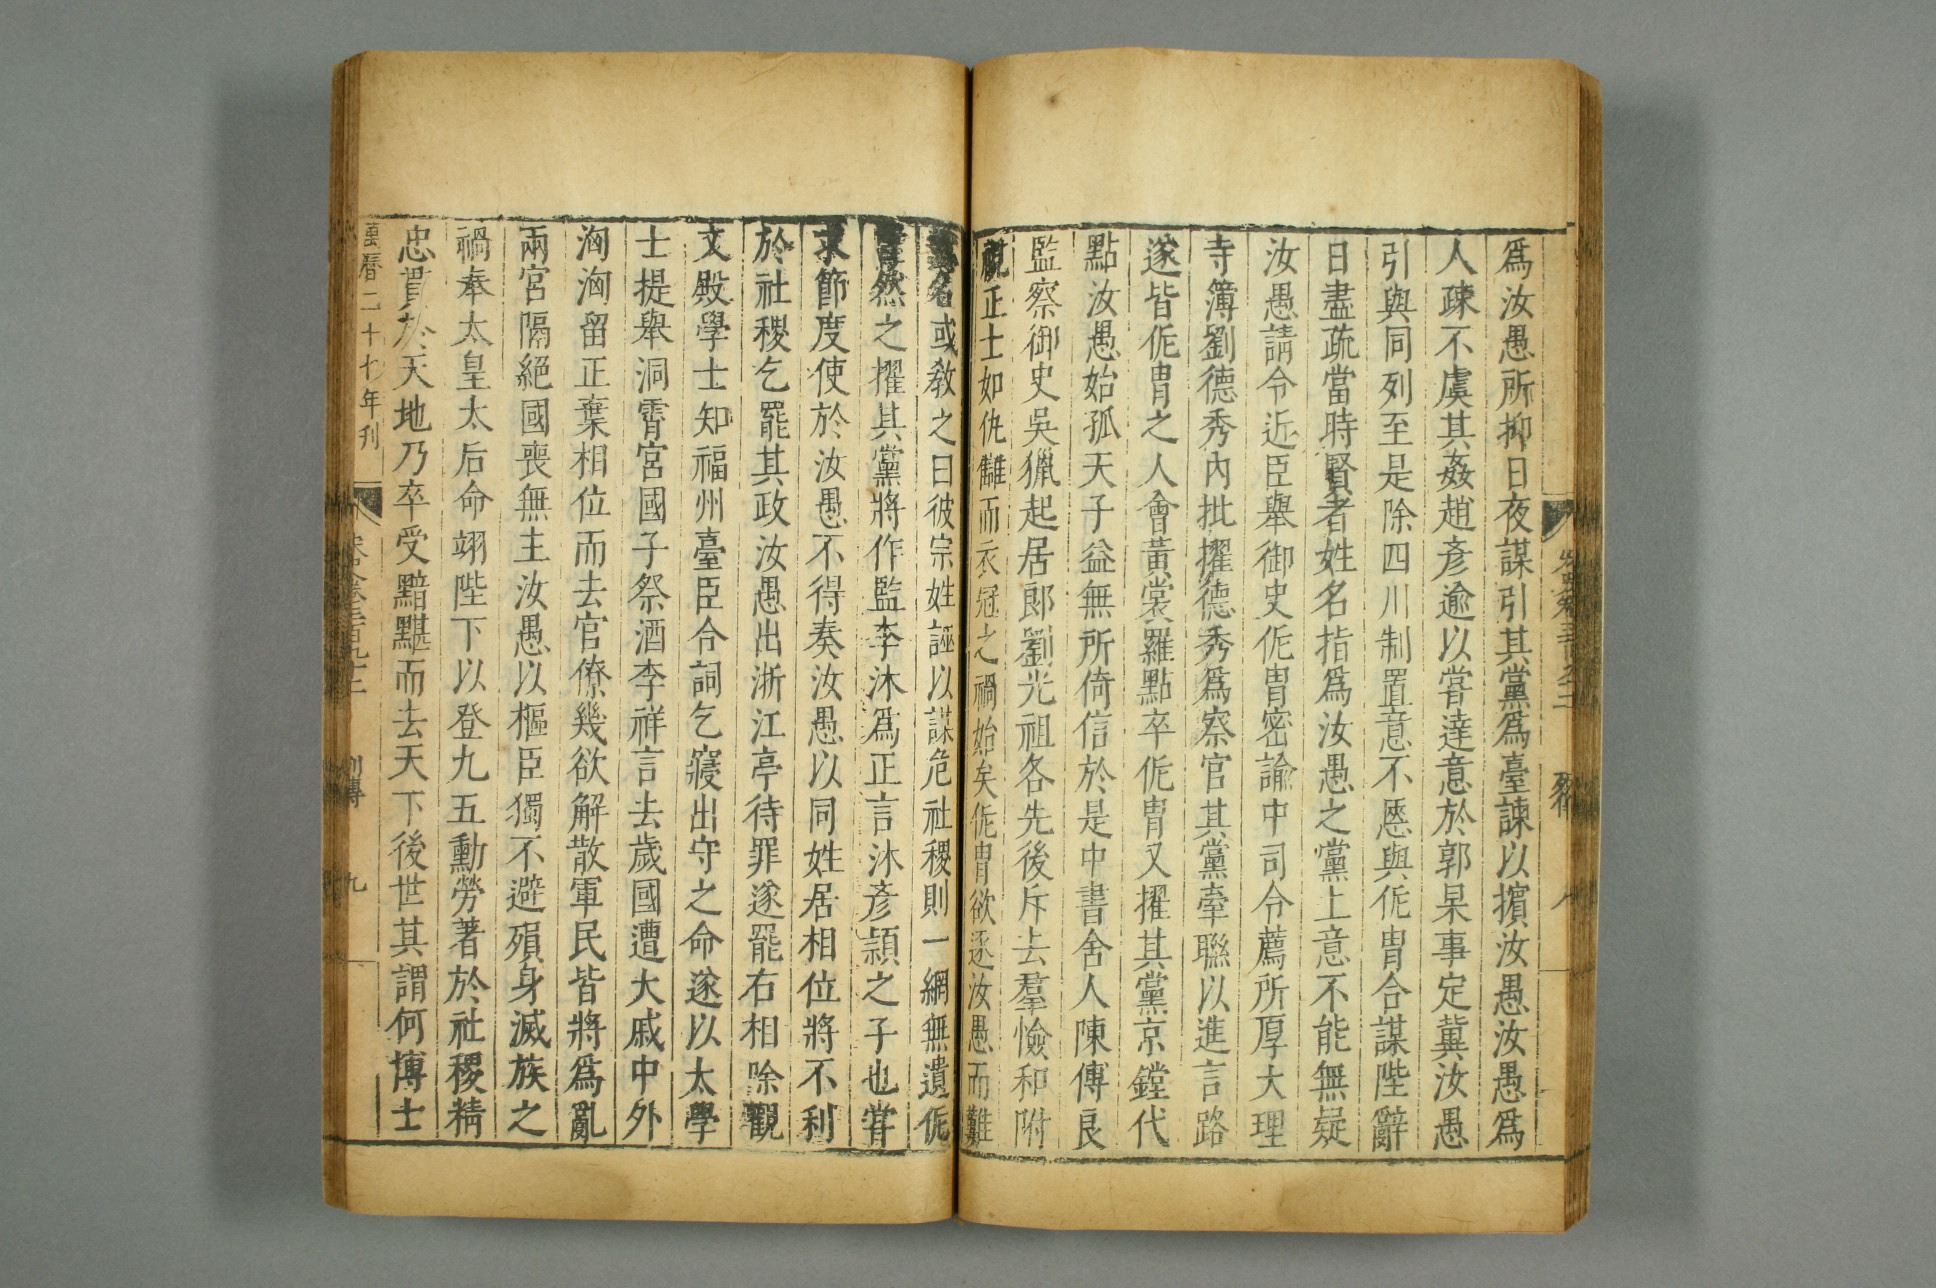 爲汝愚所抑日夜謀引其黨爲臺諫以擯汝愚汝愚爲
人疎不虞其姦趙彥逾以嘗達意於郭杲事定冀汝愚
引與同列至是除四川制置意不愜與侂胄合謀陛辭
日盡疏當時賢者姓名指爲汝愚之黨上意不能無疑
汝愚請令近臣舉御史侂胄密諭中司令薦所厚大理
寺簿劉德秀內批擢德秀爲察官其黨牽聯以進言路
遂皆侂胄之人會黃裳羅點卒侂胄又擢其黨京鏜代
點汝愚始孤天子益無所倚信於是中書舍人陳傅良
監察御史吳獵起居郎劉光祖各先後斥去羣憸和附
視正士如仇讎而衣冠之禍始矣侂胄欲逐汝愚而難
其名或敎之曰彼宗姓誣以謀危社稷則一網無遺侂
胄然之擢其黨將作監李沐爲正言沐彥頴之子也嘗
求節度使於汝愚不得奏汝愚以同姓居相位將不利
於社稷乞罷其政汝愚出浙江亭待罪遂罷右相除觀
文殿學士知福州臺臣合詞乞寢出守之命遂以太學
士提舉洞霄宮國子祭酒李祥言去歲國遭大戚中外
洶洶留正棄相位而去官僚幾欲解散軍民皆將爲亂
兩宮隔絕國喪無主汝愚以樞臣獨不避殞身滅族之
禍奉太皇太后命翊陛下以登九五勳勞著於社稷精
忠貫於天地乃卒受黯黮而去天下後世其謂何博士
萬曆二十七年刊
列傳
九